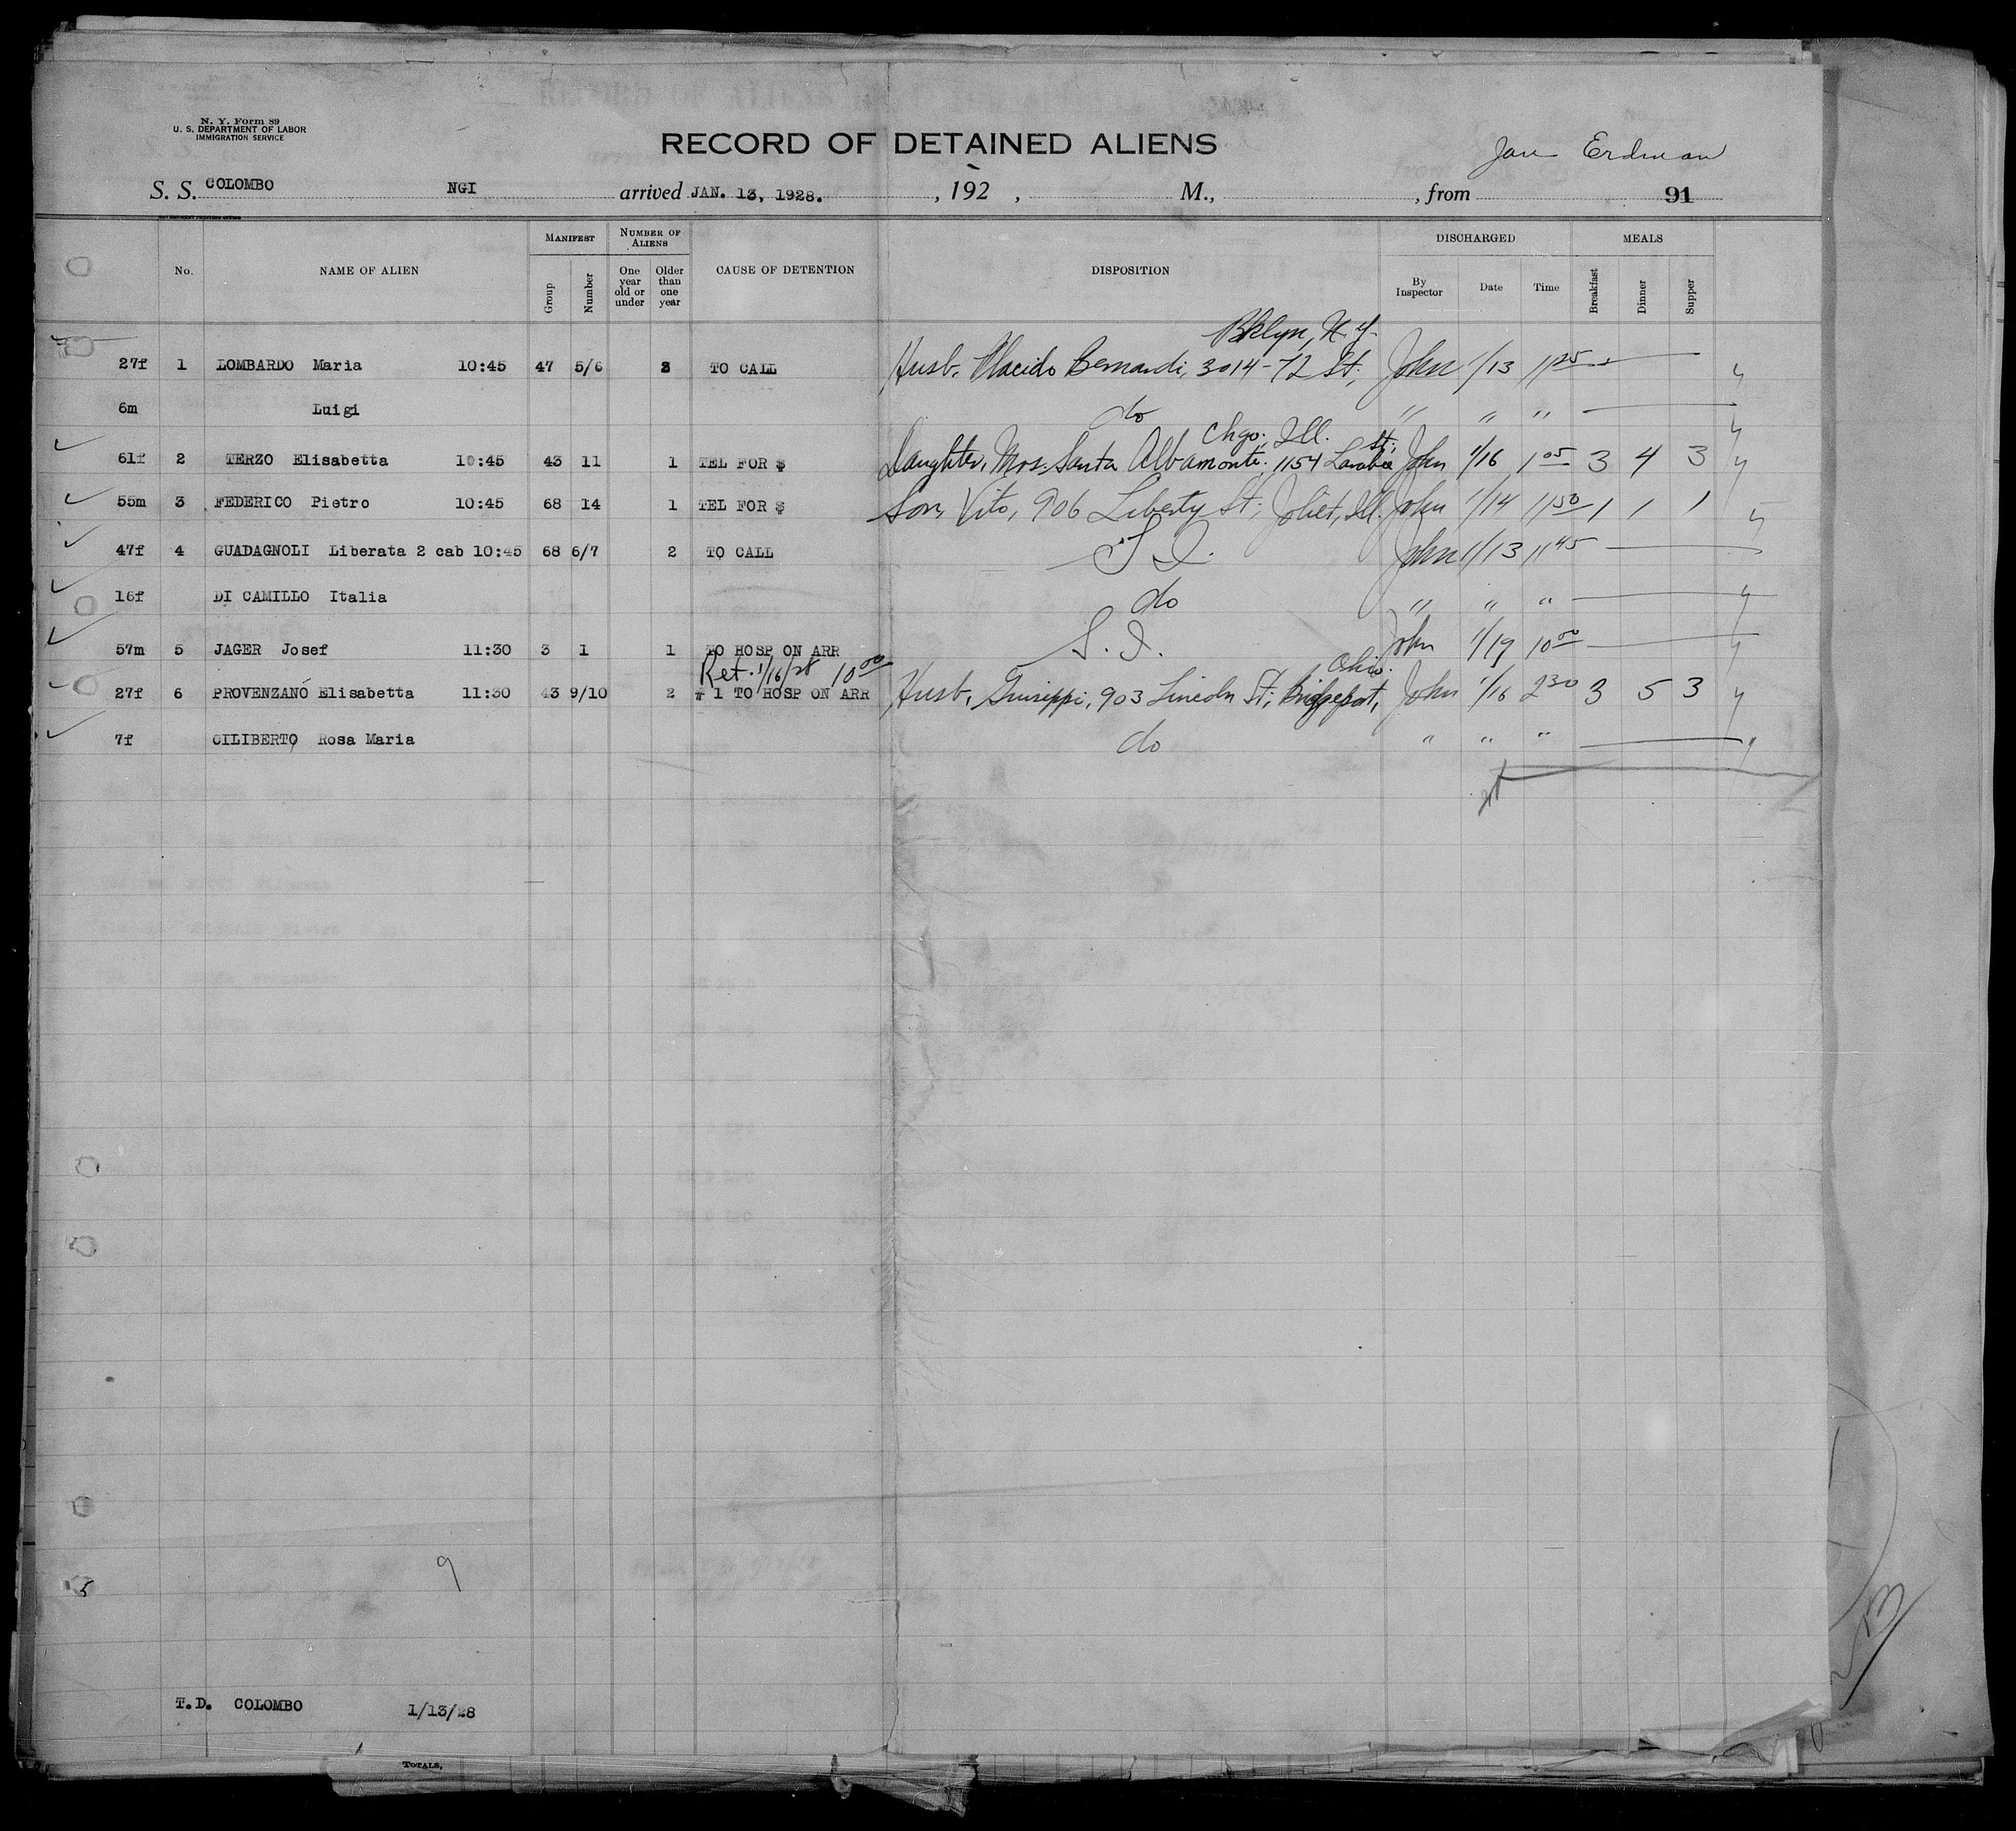 N. Y. Form 89
U. S. DEPARTMENT OF LABOR
IMMIGRATION SERVICE
RECORD OF DETAINED ALIENS
Erdman
S. S. COLOMBO NGI arrived JAN. 13, 1928. , 192 , M., , from 91
GOVERNMENT PRINTING OFFICE
No. NAME OF ALIEN MANIFEST Group Number NUMBER OF ALIENS One year old or under Older than one year CAUSE OF DETENTION DISPOSITION DISCHARGED By Inspector Date Time MEALS Breakfast Dinner Supper
Bklyn, N.Y.
27f 1 LOMBARDO Maria 10:45 47 5/6 2 TO CALL Husb. Placido Bernardi, 3014-72 St., John 1/13 11 25
6m Luigi do " " "
Chgo., Ill. St;
61f 2 TERZO Elisabetta 10:45 43 11 1 TEL FOR $ Daughter, Mrs. Santa Albamonte, 1154 Larabee John 1/16 1 05 3 4 3
55m 3 FEDERICO Pietro 10:45 68 14 1 TEL FOR $ Son, Vito, 906 Liberty St; Joliet, Ill. John 1/14 11 50 1 1 1
47f 4 GUADAGNOLI Liberata 2 cab 10:45 68 6/7 2 TO CALL S.I. John 1/13 11 45
16f DI CAMILLO Italia do " " "
57m 5 JAGER Josef 11:30 3 1 1 TO HOSP ON ARR S.I. John 1/19 10 00
Ret. 1/16/28 10 00 Ohio.
27f 6 PROVENZANO Elisabetta 11:30 43 9/10 2 # 1 TO HOSP ON ARR Husb, Giuseppi, 903 Lincoln St; Bridgeport, John 1/16 2 30 3 5 3
7f CILIBERTO Rosa Maria do " " "
9
5
T.D. COLOMBO 1/13/28
TOTALS,